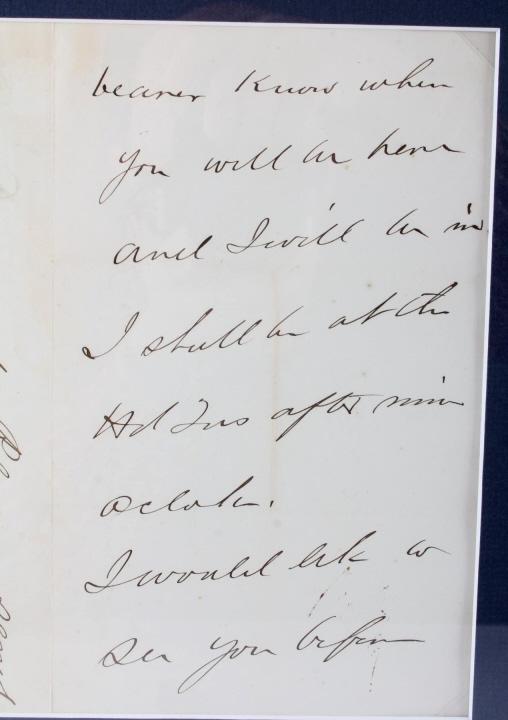 bearer know when
you will be here
and I will be in.
I shall be at the
Hd Qrs after nine
oclock.
I would like to
see you before